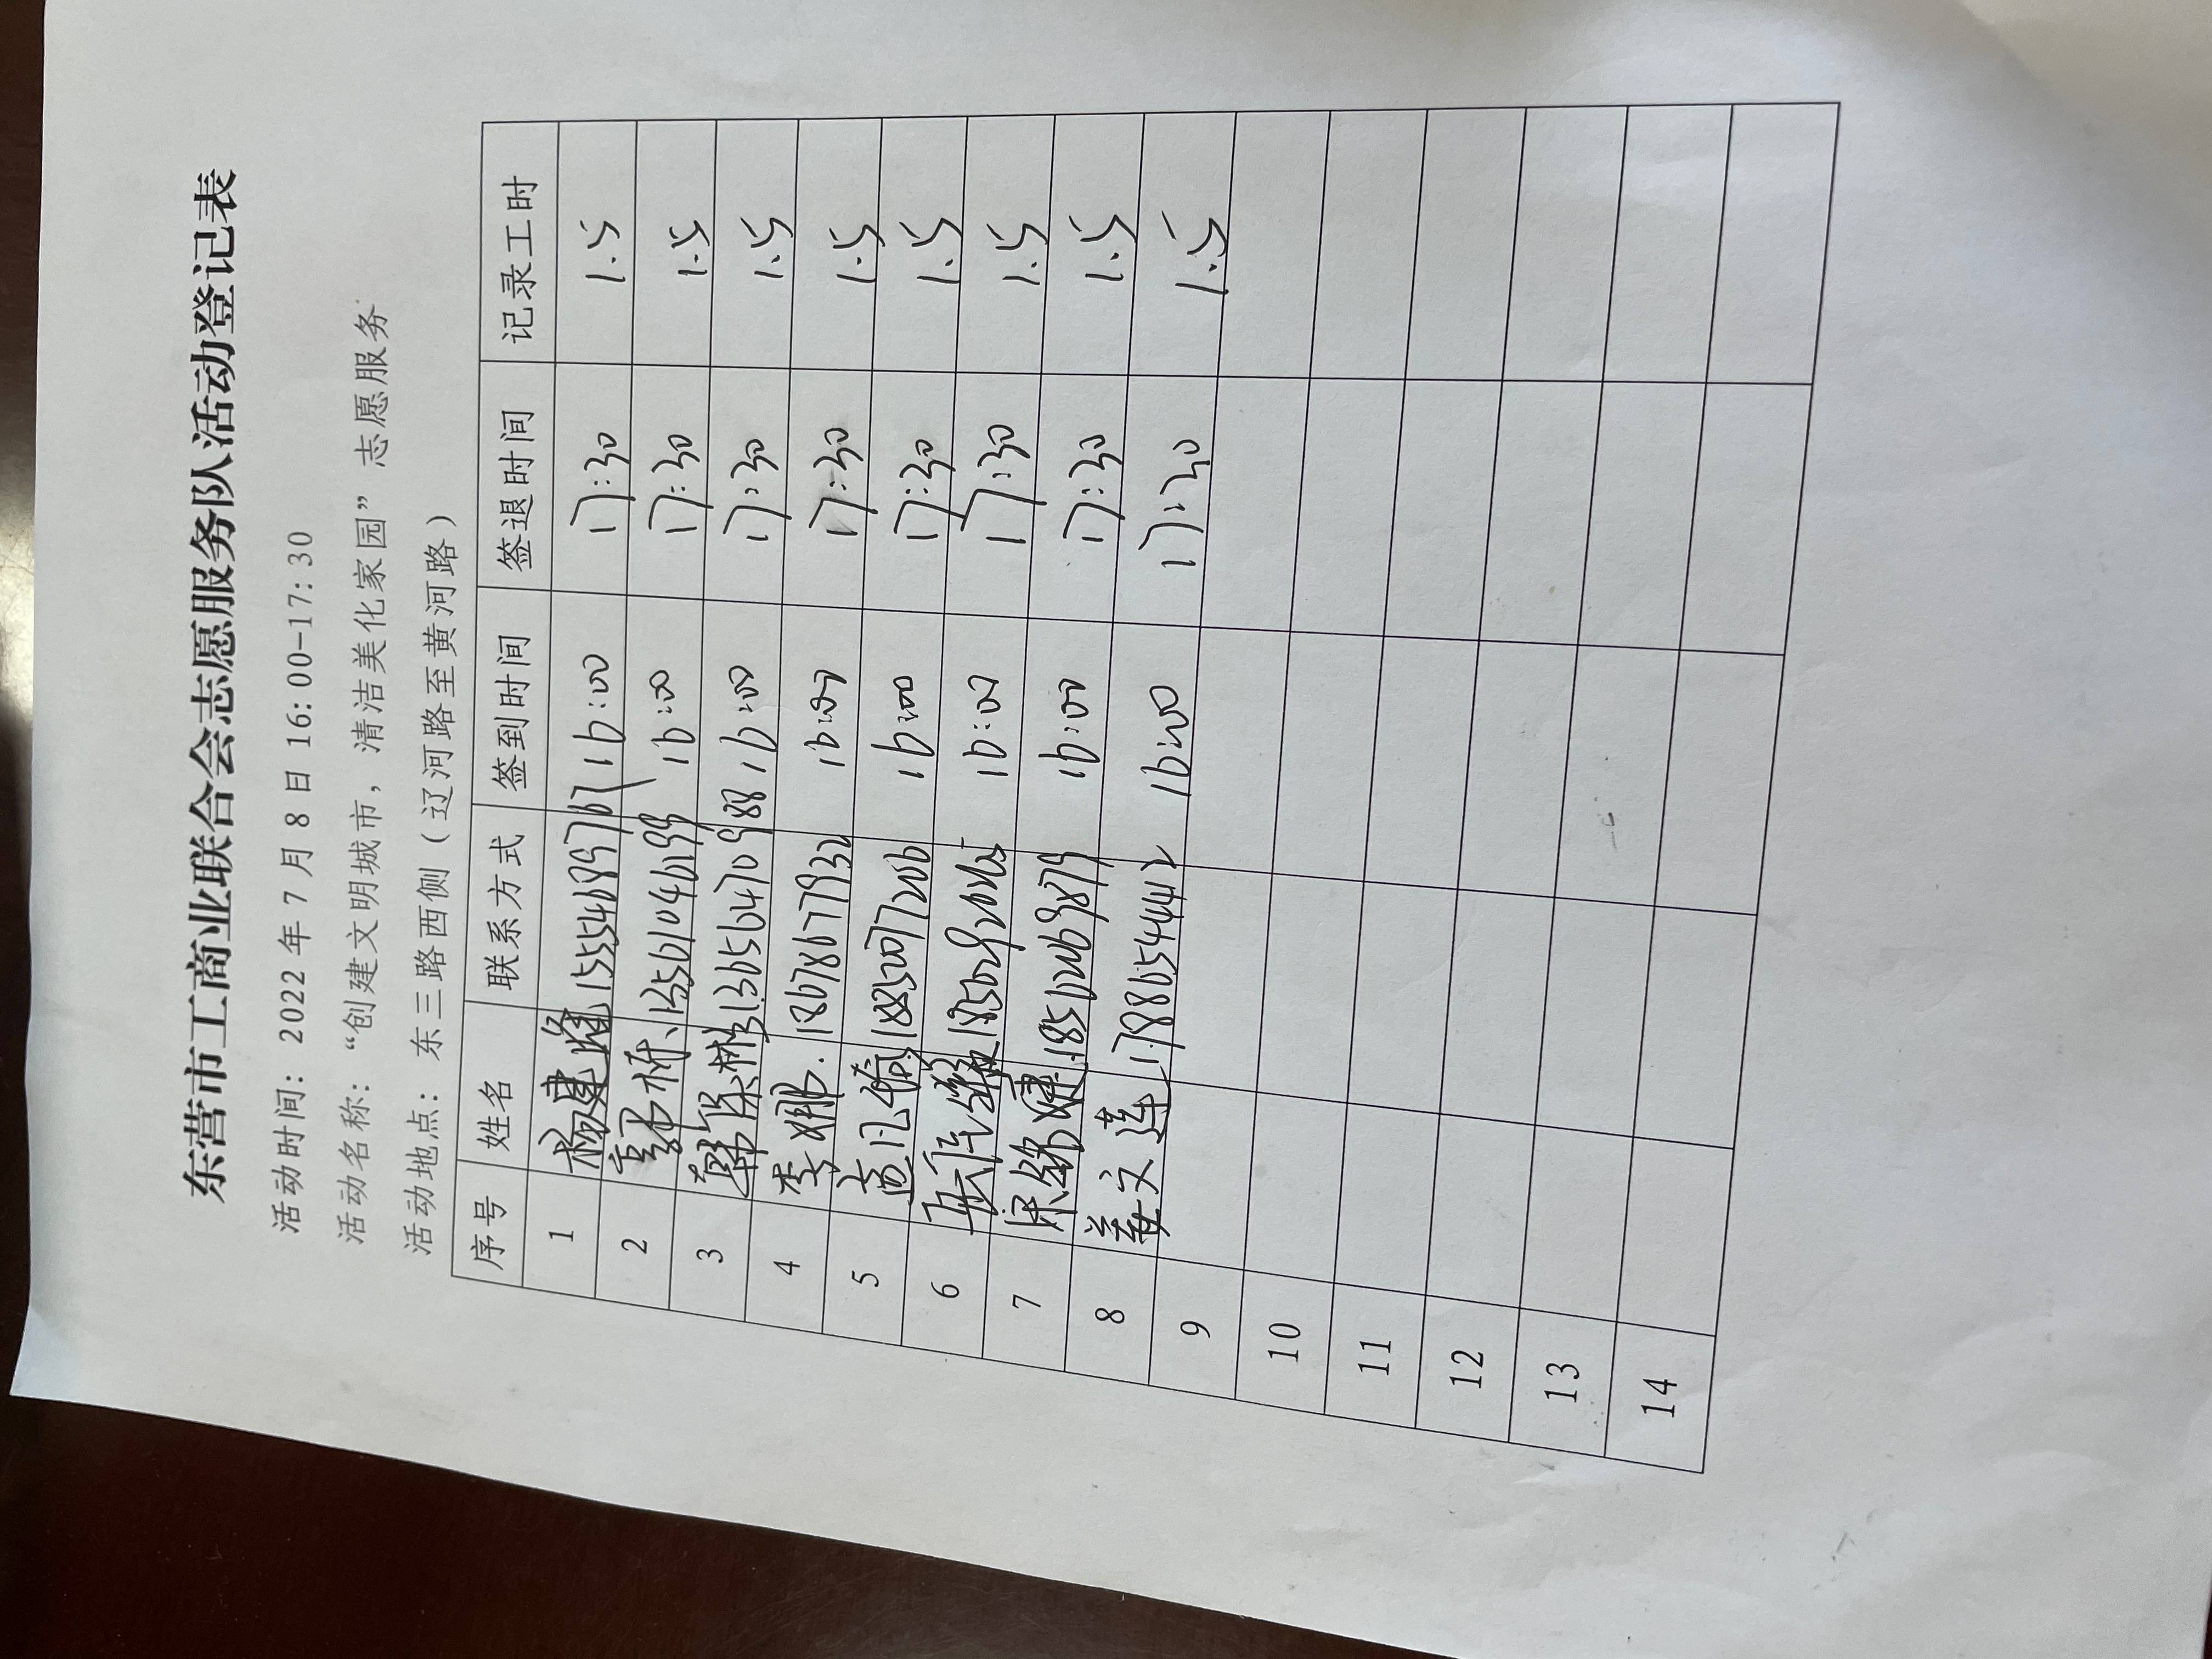 东营市工商业联合会志愿服务队活动登记表
活动时间：2022年7月8日16:00-17:30
活动名称：“创建文明城市，清洁美化家园”志愿服务
活动地点：东三路西侧（辽河路至黄河路）
序号 姓名 联系方式 签到时间 签退时间 记录工时
1 杨建 16:00 17:30 1.5
2 13561046199 16:00 17:30 1.5
3 韩保彬 13656470988 16:00 17:30 1.5
4 李娜 18678677932 16:00 17:30 1.5
5 18852077206 16:00 17:30 1.5
6 16:00 17:30 1.5
7 18561269879 16:00 17:30 1.5
8 姜文莲 17886544412 16:00 17:30 1.5
9
10
11
12
13
14